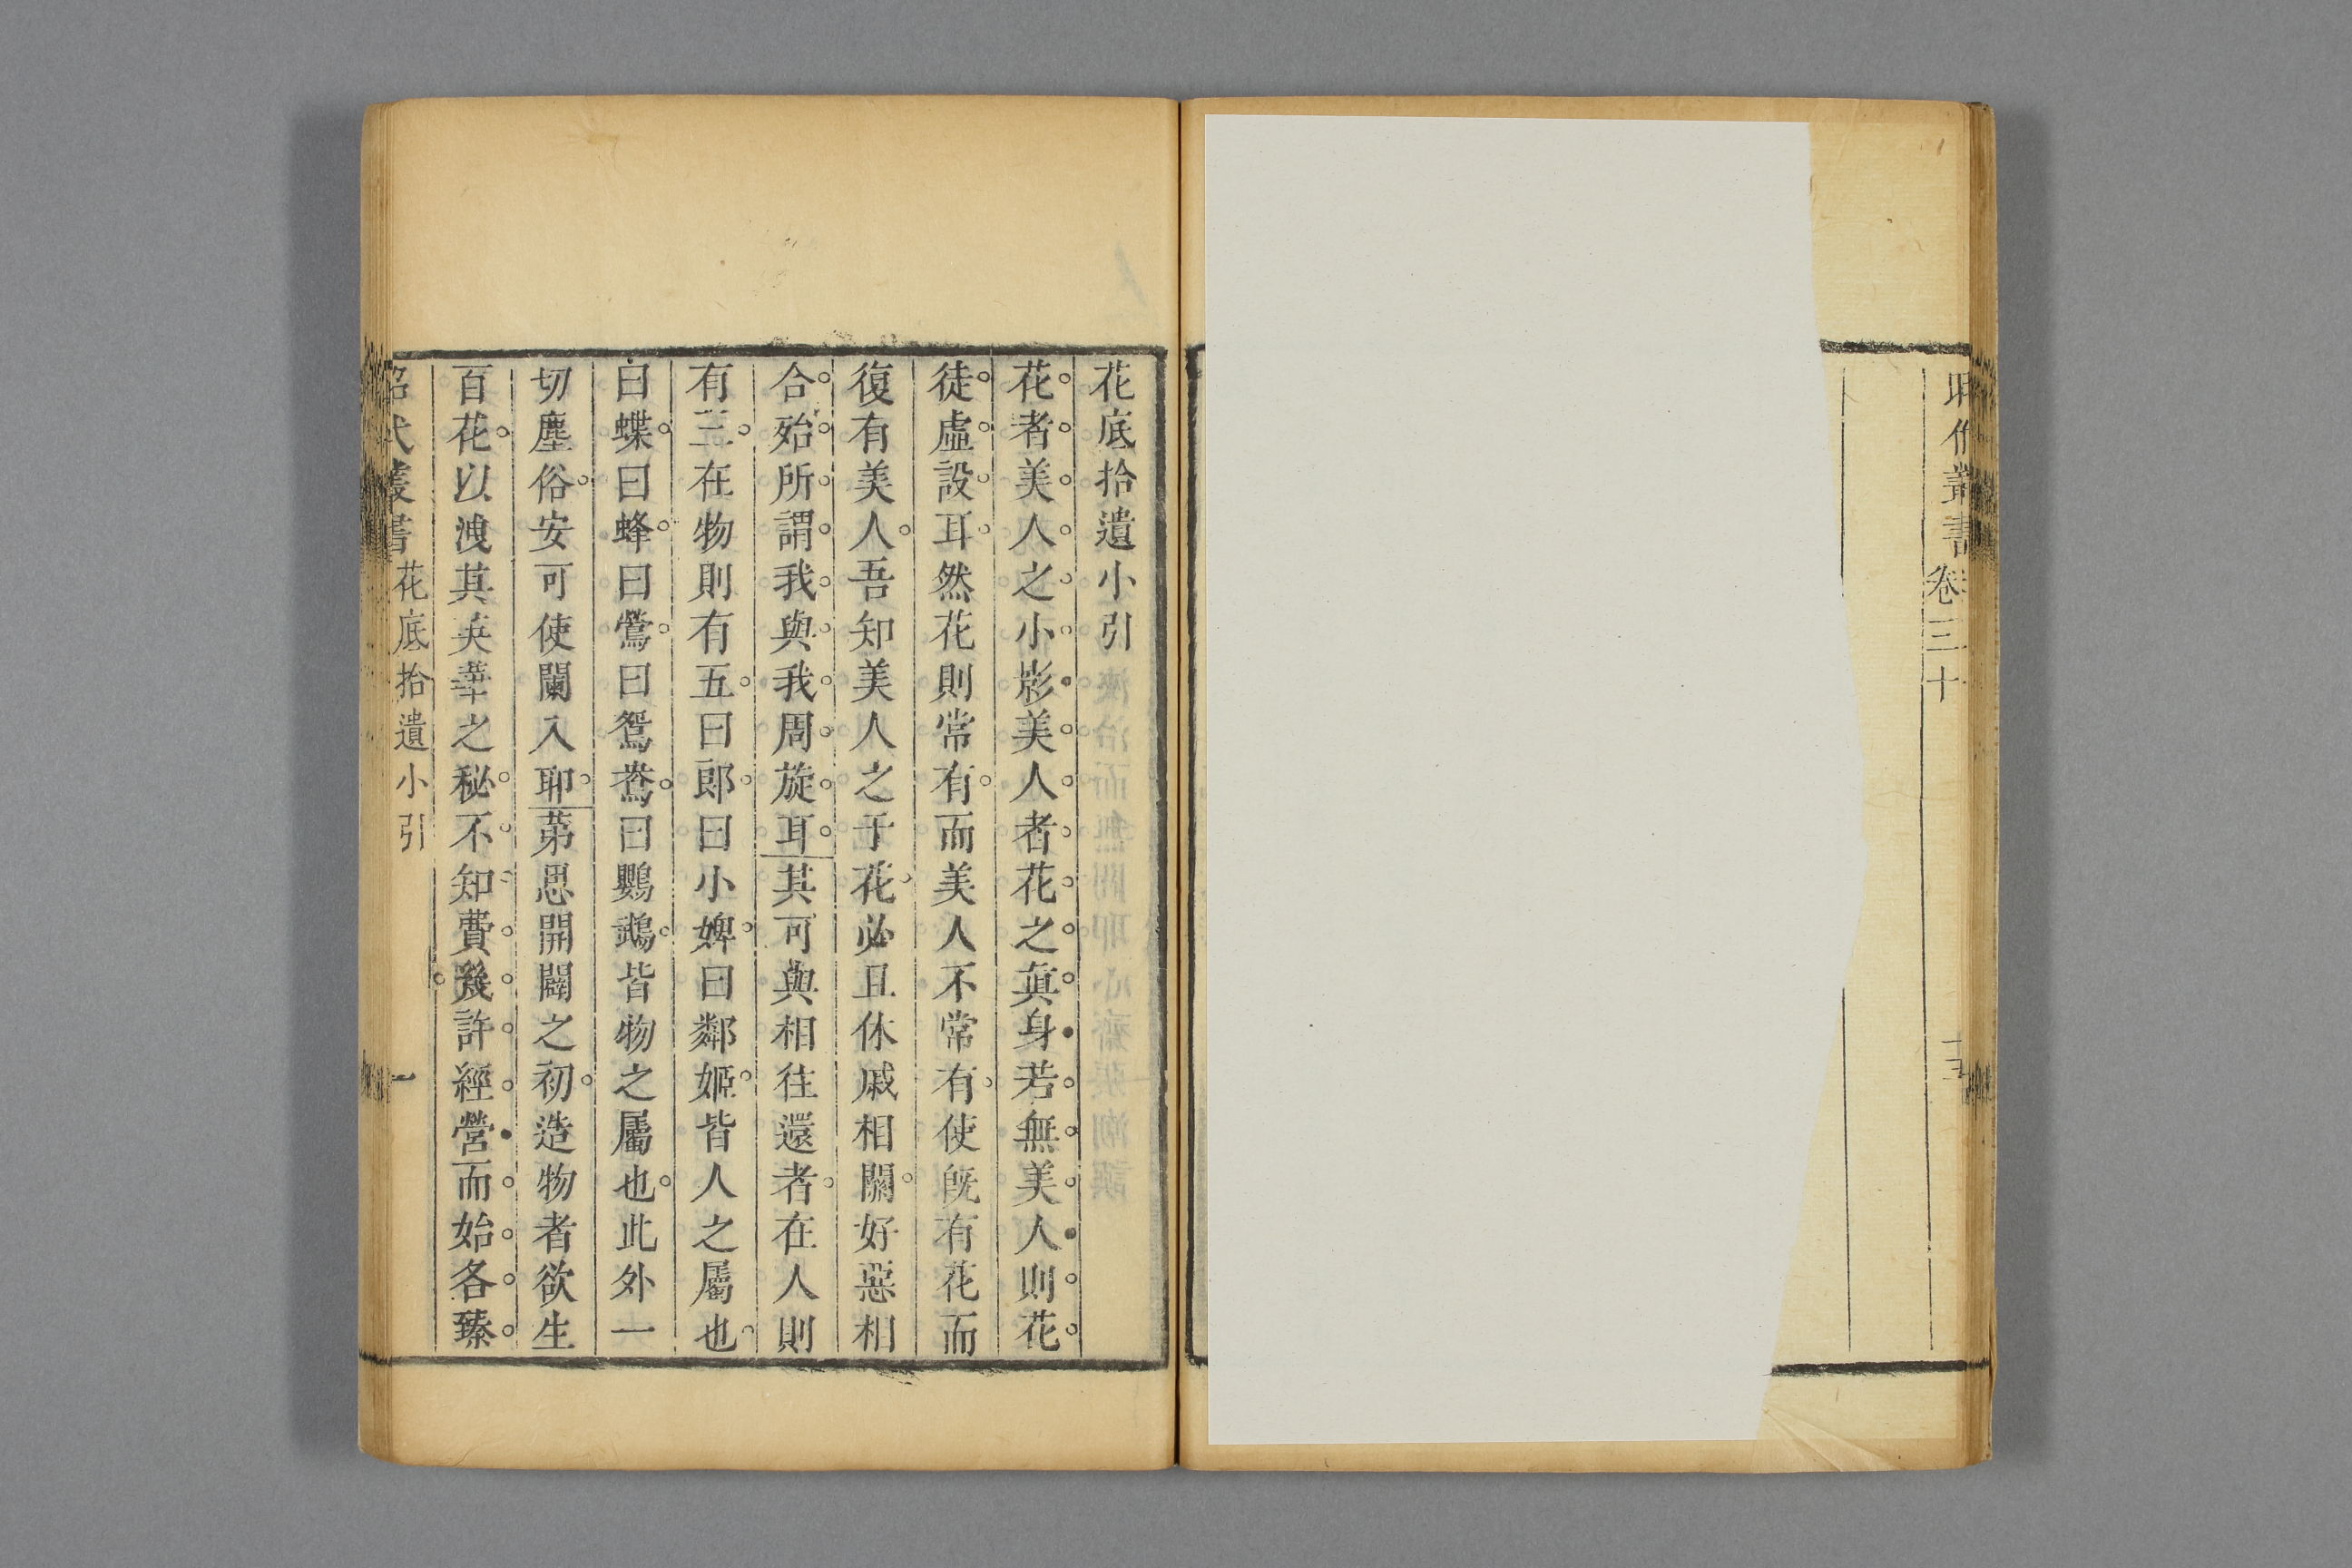 昭代叢書 卷三十
花底拾遺小引
花者美人之小影美人者花之眞身若無美人則花
徒虛設耳然花則常有而美人不常有使旣有花而
復有美人吾知美人之于花必且休戚相關好惡相
合殆所謂我與我周旋耳其可與相往還者在人則
有三在物則有五曰郎曰小婢曰鄰姬皆人之屬也
曰蝶曰蜂曰鶯曰鴛鴦曰鸚鵡皆物之屬也此外一
切塵俗安可使闌入耶第思開闢之初造物者欲生
百花以洩其英華之秘不知費幾許經營而始各臻
昭代叢書 花底拾遺小引 一